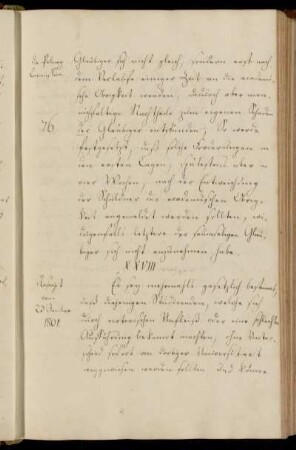 Gläubiger sich nicht gleich, sondern erst nach
dem Verlaufe einiger Zeit an die academi-
sche Obrigkeit wenden, dadurch aber man-
nichfaltige Nachtheile zum eigenen Schaden
76
der Gläubiger entstünden; So werde
festgesetzt, daß solche Forderungen in
den ersten Tagen, spätestens aber in
vier Wochen, nach der Entweichung
der Schuldner der academischen Obrig-
keit angemeldet werden sollten, wi-
drigenfalls letztere der saumseligen Gläu-
biger sich nicht anzunehmen habe.
XXVIII
vom
23 October
1801
Es sey mehrmals gesetzlich bestimmt,
daß diejenigen Studirenden, welche sich
durch notorischen Unfleiß oder eine schlechte
Aufführung bekannt machten, ohne Unter-
schied sofort an hiesiger Universitaet
weggewiesen werden sollten und könne